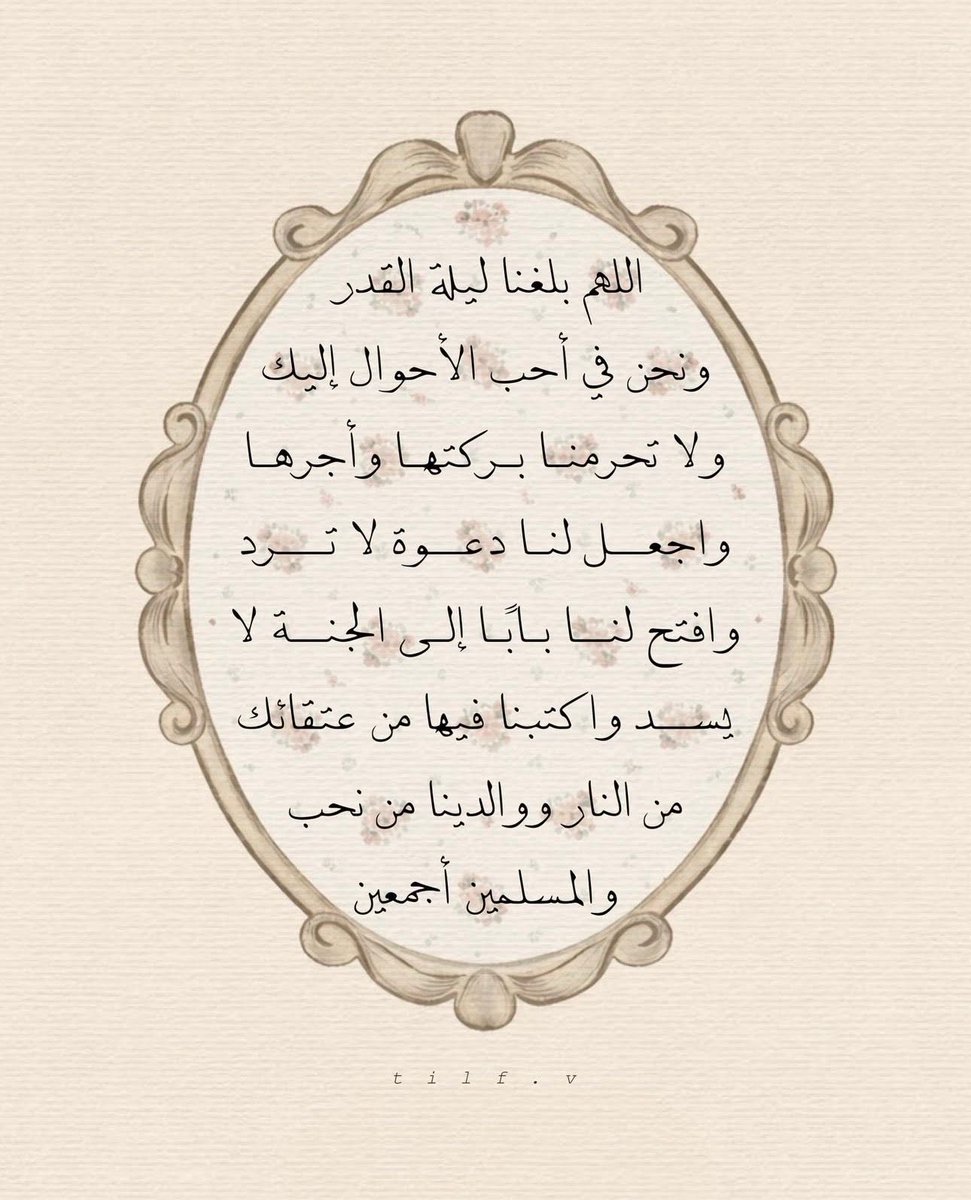 اللهم بلغنا ليلة القدر
ونحن في أحب الأحوال إليك
ولا تحرمنـا بـركتهـا وأجرهـا
واجعـــل لنـا دعـــوة لا تــــرد
وافتح لنـــا بـابًـا إلـى الجنـــة لا
يســـد واكتبنا فيها من عتقائك
من النار ووالدينا من نحب
والمسلمين أجمعين
t i l f . v